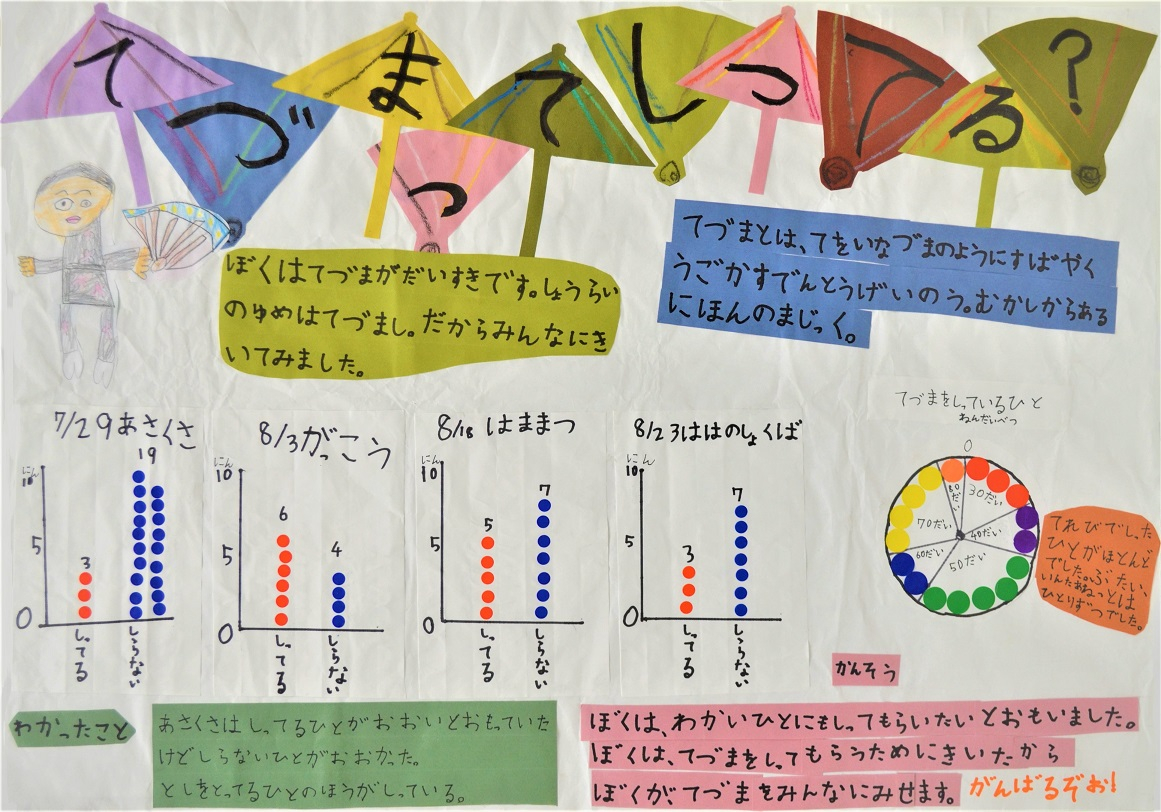 てづまってしってる?
ぼくはてづまがだいすきです。しょうらい
のゆめはてづまし。だからみんなにき
いてみました。
てづまとは、てをいなづまのようにすばやく
うごかすでんとうげいのう。むかしからある
にほんのまじっく。
7/29あさくさ
にん
10
5
0
3
19
しってる
しらない
8/3がっこう
にん
10
5
0
6
4
しってる
しらない
8/18 はままつ
にん
10
5
0
5
7
しってる
しらない
8/23ははのしょくば
にん
10
5
0
3
7
しってる
しらない
てづまをしっているひと
ねんだいべつ
0
30だい
40だい
50だい
60だい
70だい
80だい
てれびでした
ひとがほとんど
でした。ぶたい、
いんたあねっとは
ひとりずつでした。
わかったこと
あさくさはしってるひとがおおいとおもっていた
けどしらないひとがおおかった。
としをとってるひとのほうがしっている。
かんそう
ぼくは、わかいひとにもしってもらいたいとおもいました。
ぼくは、てづまをしってもらうためにきいたから
ぼくが、てづまをみんなにみせます。がんばるぞお!